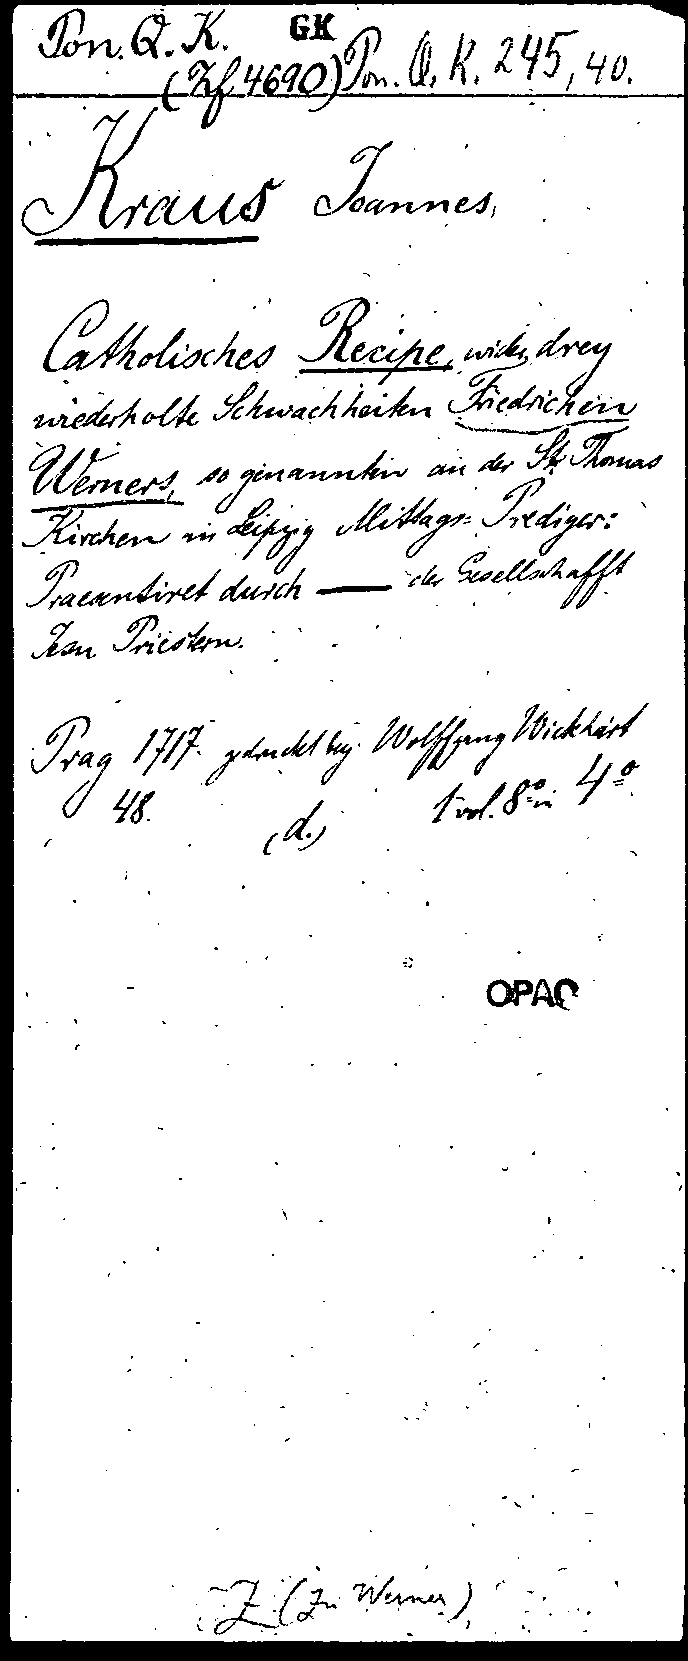 Pon. Q. K. GK
(Zf 4690) Pon. Q. K. 245, 40.
Kraus Joannes,
Catholisches Recipe, wider drey
wiederholte Schwachheiten Friedrichen
Werners, so genannten an der St. Thomas
Kirchen in Leipzig Mittags= Prediger:
Praesentiret durch — der Gesellschafft
Jesu Priestern.
Prag 1717. gedruckt bey. Wolffgang Wickhart
48. (d.) 1 vol. 8º in 4º
OPAC
Z (zu Werner)